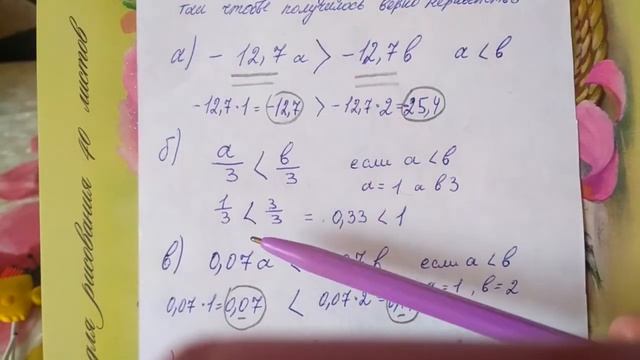 так чтобы получилось верно неравенство
а) - 12,7а > -12,7в а < в
-12,7·1 = -12,7 > -12,7·2 = -25,4
б) а/3 < в/3 если а < в
а = 1 а в 3
1/3 < 3/3 = 0,33 < 1
в) 0,07а < 07в если а < в
=1, в = 2
0,07·1 = 0,07 < 0,07·2 =
для рисования 40 листов